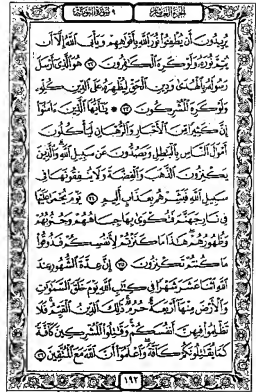 الجزء العاشر ٩ سورة التوبة
يُرِيدُونَ أَن يُطْفِـُٔوا۟ نُورَ ٱللَّهِ بِأَفْوَٰهِهِمْ وَيَأْبَى ٱللَّهُ إِلَّآ أَن
يُتِمَّ نُورَهُۥ وَلَوْ كَرِهَ ٱلْكَٰفِرُونَ ٣٢ هُوَ ٱلَّذِىٓ أَرْسَلَ
رَسُولَهُۥ بِٱلْهُدَىٰ وَدِينِ ٱلْحَقِّ لِيُظْهِرَهُۥ عَلَى ٱلدِّينِ كُلِّهِۦ
وَلَوْ كَرِهَ ٱلْمُشْرِكُونَ ٣٣ ۞ يَٰٓأَيُّهَا ٱلَّذِينَ ءَامَنُوٓا۟
إِنَّ كَثِيرًا مِّنَ ٱلْأَحْبَارِ وَٱلرُّهْبَانِ لَيَأْكُلُونَ
أَمْوَٰلَ ٱلنَّاسِ بِٱلْبَٰطِلِ وَيَصُدُّونَ عَن سَبِيلِ ٱللَّهِ وَٱلَّذِينَ
يَكْنِزُونَ ٱلذَّهَبَ وَٱلْفِضَّةَ وَلَا يُنفِقُونَهَا فِى
سَبِيلِ ٱللَّهِ فَبَشِّرْهُم بِعَذَابٍ أَلِيمٍ ٣٤ يَوْمَ يُحْمَىٰ عَلَيْهَا
فِى نَارِ جَهَنَّمَ فَتُكْوَىٰ بِهَا جِبَاهُهُمْ وَجُنُوبُهُمْ
وَظُهُورُهُمْ هَٰذَا مَا كَنَزْتُمْ لِأَنفُسِكُمْ فَذُوقُوا۟
مَا كُنتُمْ تَكْنِزُونَ ٣٥ إِنَّ عِدَّةَ ٱلشُّهُورِ عِندَ
ٱللَّهِ ٱثْنَا عَشَرَ شَهْرًا فِى كِتَٰبِ ٱللَّهِ يَوْمَ خَلَقَ ٱلسَّمَٰوَٰتِ
وَٱلْأَرْضَ مِنْهَآ أَرْبَعَةٌ حُرُمٌ ذَٰلِكَ ٱلدِّينُ ٱلْقَيِّمُ فَلَا
تَظْلِمُوا۟ فِيهِنَّ أَنفُسَكُمْ وَقَٰتِلُوا۟ ٱلْمُشْرِكِينَ كَآفَّةً
كَمَا يُقَٰتِلُونَكُمْ كَآفَّةً وَٱعْلَمُوٓا۟ أَنَّ ٱللَّهَ مَعَ ٱلْمُتَّقِينَ ٣٦
١٩٢